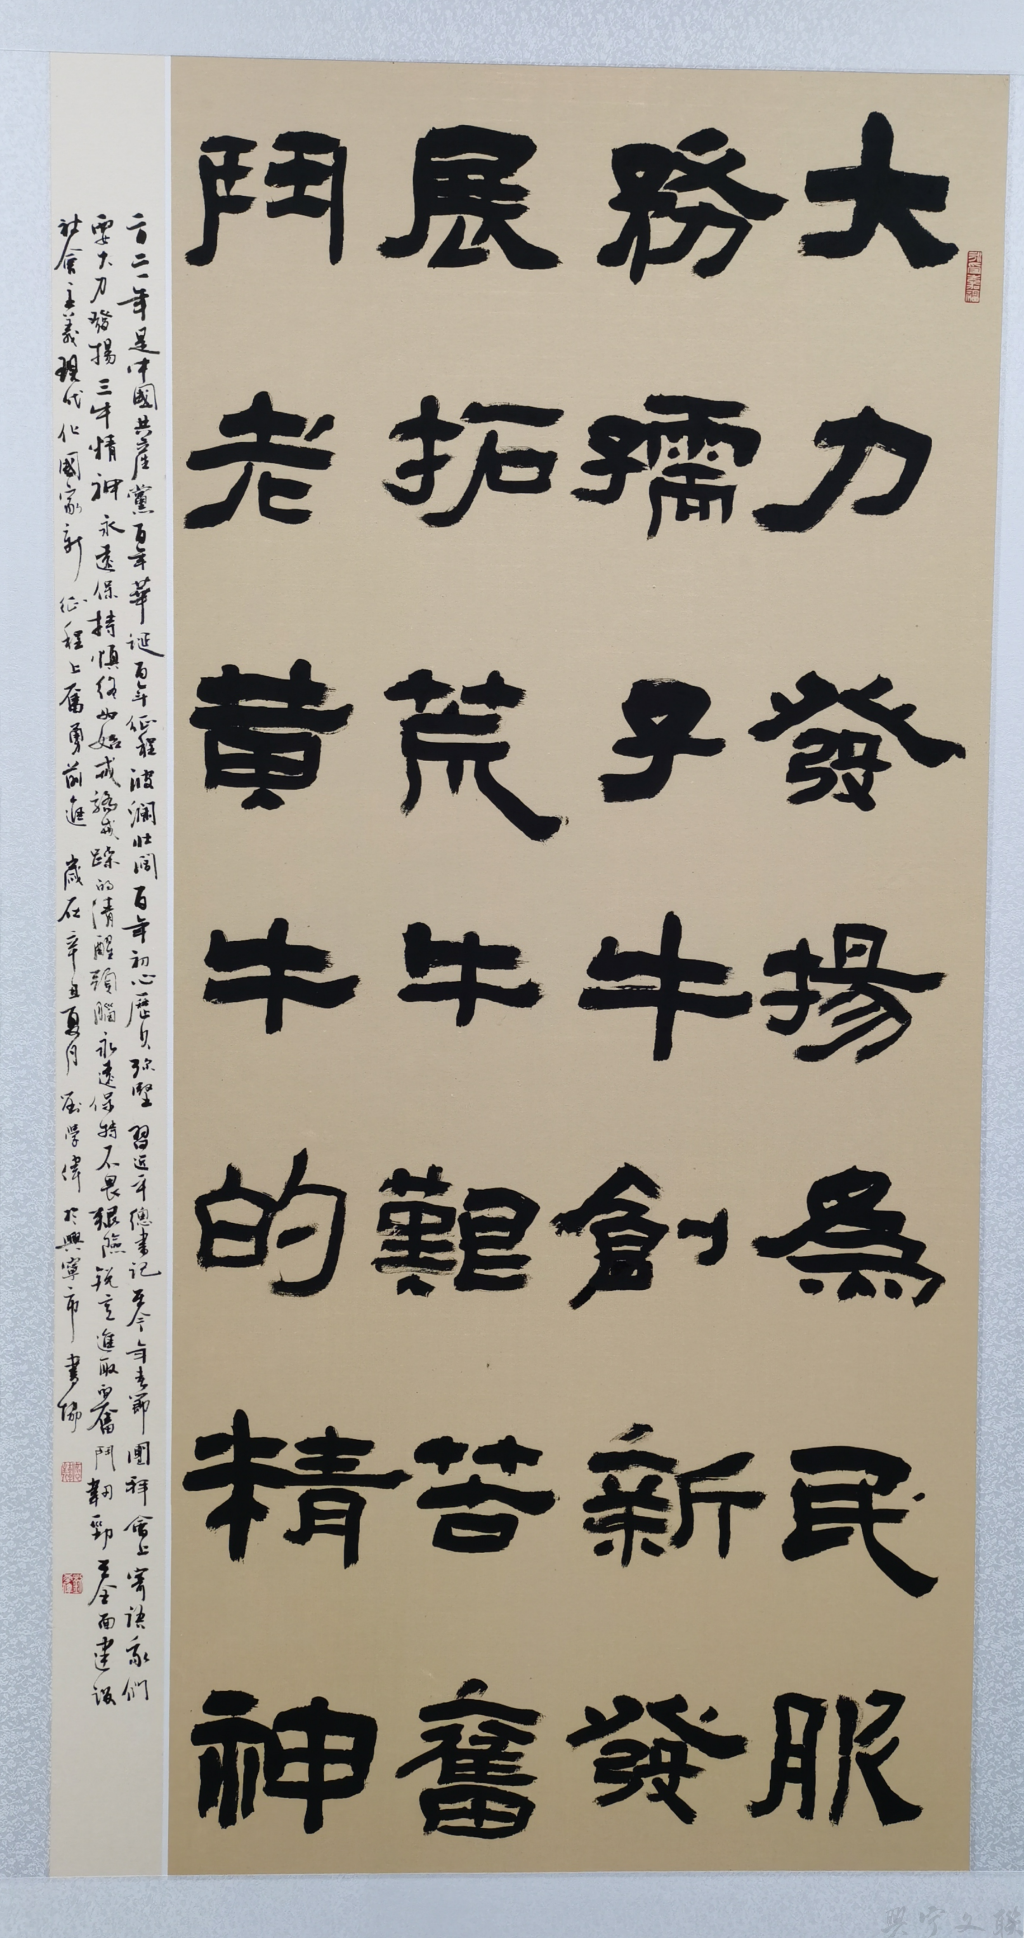 大力發揚為民服
務孺子牛創新發
展拓荒牛艱苦奮
鬥老黃牛的精神
二〇二一年是中國共產黨百年華誕百年征程波瀾壯闊百年初心歷久弥堅習近平總書記在今年春節團拜會上寄語我們
要大力發揚三牛精神永遠保持慎終如始戒驕戒躁的清醒頭腦永遠保持不畏艱險銳意進取的奮鬥韌勁在全面建設
社會主義現代化國家新征程上奮勇前進歲在辛丑夏月學偉於興寧市書協
興寧文联